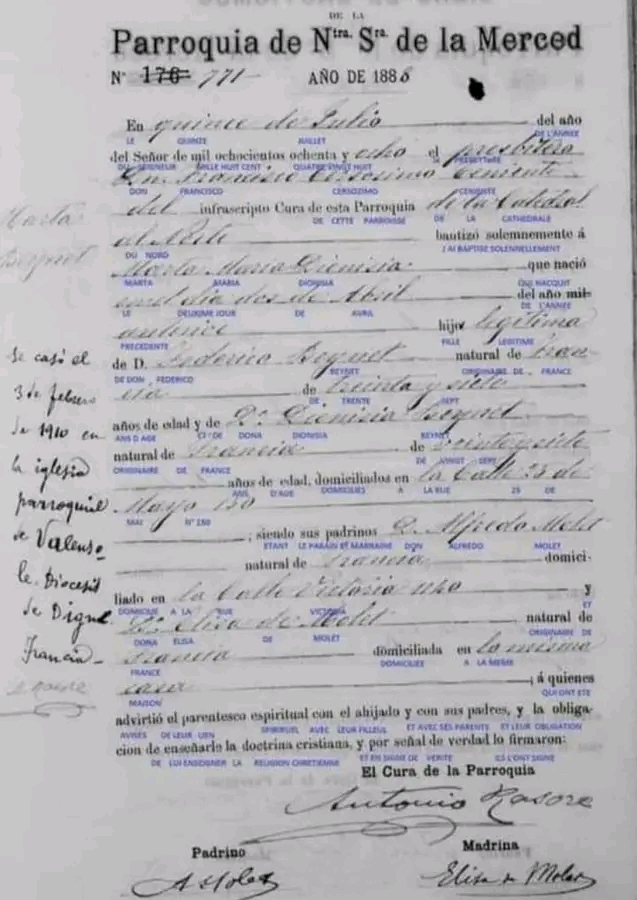 DE LA
Parroquia de Ntra. Sra. de la Merced
N° 176 771 AÑO DE 1888
En quince de Julio del año
LE QUINZE JUILLET DE L'ANNEE
del Señor de mil ochocientos ochenta y ocho el presbitero
DU SEIGNEUR MILLE HUIT CENT QUATRE VINGT HUIT PRESBYTERE
Dn. Francisco Cersosimo teniente
DON FRANCISCO CERSOZIMO CENIENTE
del infrascripto Cura de esta Parroquia de la Catedral
DE CETTE PARROISSE DE LA CATHEDRALE
al Norte bautizó solemnemente á
DU NORD J'AI BAPTISE SOLENNELLEMENT
Marta Maria Dionisia que nació
MARTA MARIA DIONISIA QUI NACQUIT
en el dia dos de Abril del año mil
LE DEUXIEME JOUR DE AVRIL DE L'ANNEE
hijo legitima
PRECEDENTE FILLE LEGITIME
de D. Federico Beynet natural de Fran
DE DON FEDERICO BEYNET ORIGINAIRE DE FRANCE
cia de treinta y siete
DE TRENTE SEPT
años de edad y de Da. Dionisia Beynet
ANS D AGE ET DE DONA DIONISIA BEYNET
natural de Francia de veinte y siete
ORIGINAIRE DE FRANCE DE VINGT SEPT
años de edad, domiciliados en la Calle 25 de
ANS D'AGE DOMICILIES A LA RUE 25 DE
Mayo 150
MAI N° 150
; siendo sus padrinos D. Alfredo Molet
ETANT LE PARAIN ET MARRAINE DON ALFREDO MOLET
natural de Francia domici-
liado en la Calle Victoria y
DOMICILIE A LA RUE VICTORIA ET
Da. Elisa de Molet natural de
DONA ELISA DE MOLET ORIGINAIRE DE
Francia domiciliada en la misma
FRANCE DOMICILIEE A LA MEME
casa ; á quienes
MAISON QUI ONT ETE
advirtió el parentesco espiritual con el ahijado y con sus padres, y la obliga-
AVISES DE LEUR LIEN SPIRITUEL AVEC LEUR FILLEUL ET AVEC SES PARENTS ET LEUR OBLIGATION
cion de enseñarle la doctrina cristiana, y por señal de verdad lo firmaron:
DE LUI ENSEIGNER LA RELIGION CHRETIENNE ET EN SIGNE DE VERITE ILS L'ONT SIGNE
El Cura de la Parroquia
Antonio Rasore
Padrino Madrina
A Molet Elisa de Molet
Marta
Beynet
Se casó el
3 de febrero
de 1910 en
la iglesia
parroquial
de Valenso-
le Diocesis
de Digne
Francia
Rasore